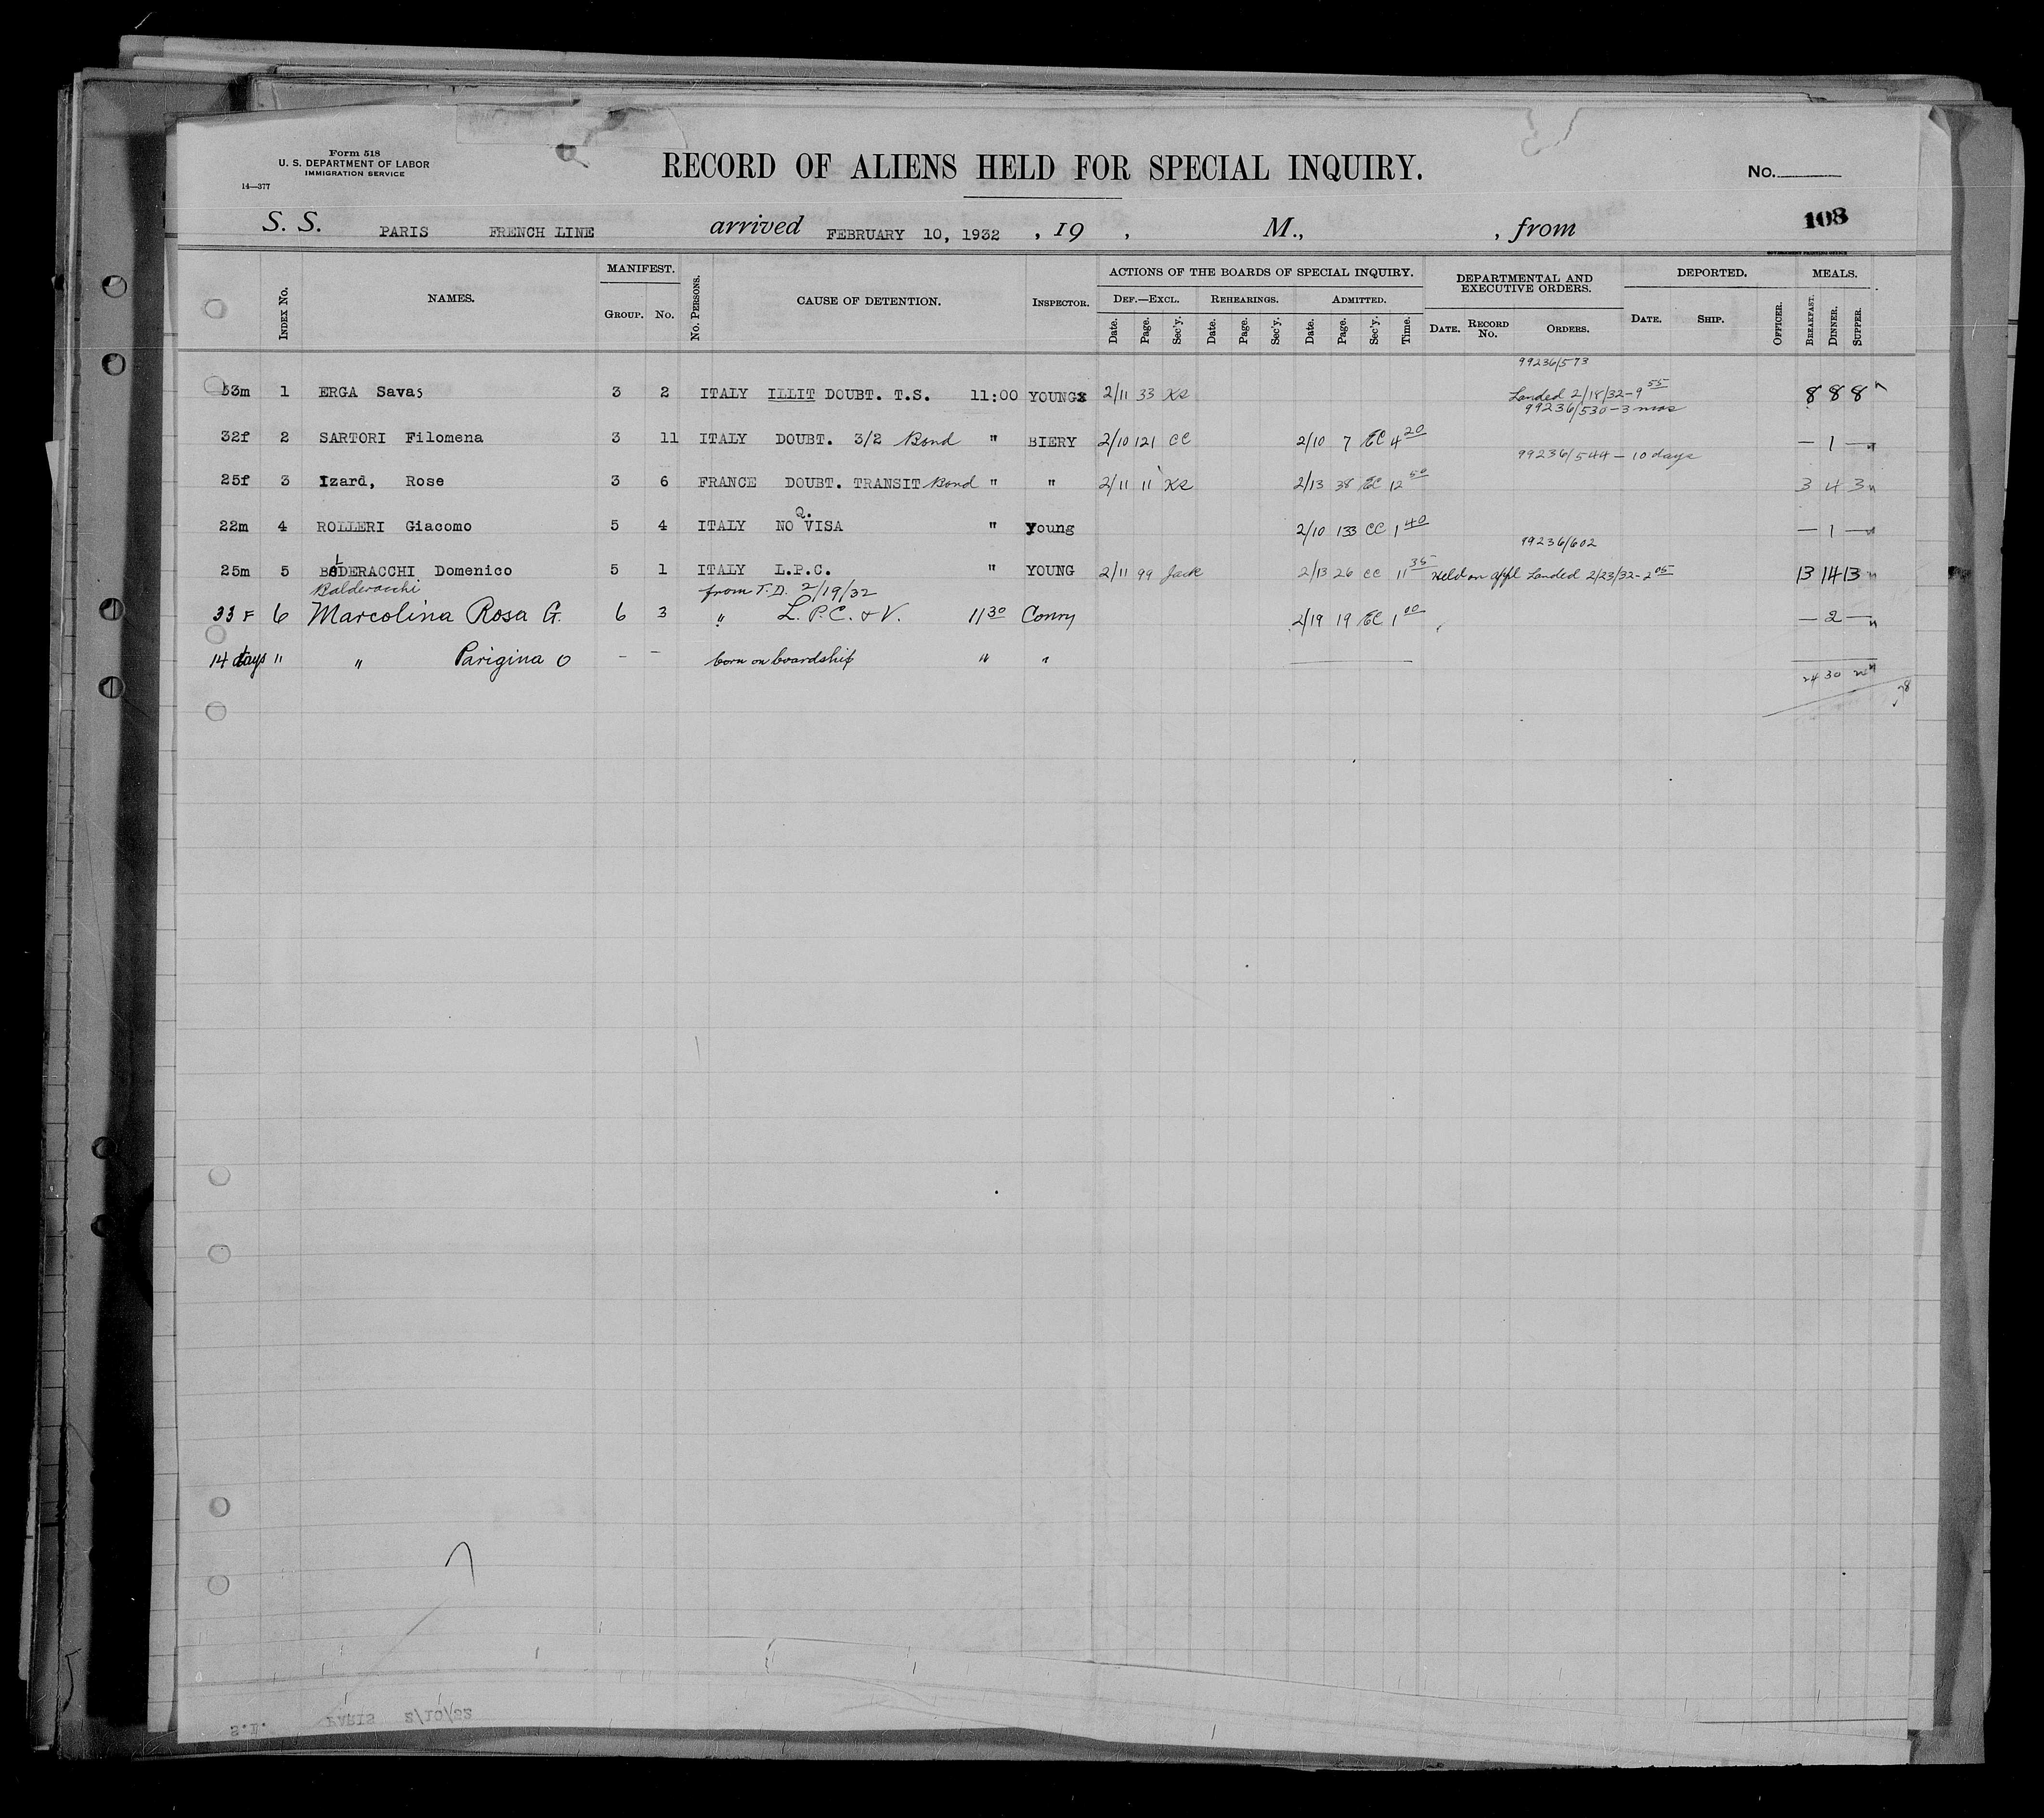 Form 518
U. S. DEPARTMENT OF LABOR
IMMIGRATION SERVICE
14—377
RECORD OF ALIENS HELD FOR SPECIAL INQUIRY.
No.
S. S. PARIS FRENCH LINE arrived FEBRUARY 10, 1932 , 19 , M., , from
108
GOVERNMENT PRINTING OFFICE
INDEX No. NAMES. MANIFEST. GROUP. No. No. PERSONS. CAUSE OF DETENTION. INSPECTOR. ACTIONS OF THE BOARDS OF SPECIAL INQUIRY. DEPARTMENTAL AND EXECUTIVE ORDERS. DEPORTED. MEALS.
DEF.—EXCL. REHEARINGS. ADMITTED.
Date. Page. Sec'y. Date. Page. Sec'y. Date. Page. Sec'y. Time. DATE. RECORD No. ORDERS. DATE. SHIP. OFFICER. BREAKFAST. DINNER. SUPPER.
99236/573
53m 1 ERGA Savas 3 2 ITALY ILLIT DOUBT. T.S. 11:00 YOUNG 2/11 33 KR Landed 2/18/32-9 55 8 8 8
99236/530-3 mos
32f 2 SARTORI Filomena 3 11 ITALY DOUBT. 3/2 Bond " BIERY 2/10 121 CC 2/10 7 EC 4 20 — 1 —
99236/544 - 10 days
25f 3 Izard, Rose 3 6 FRANCE DOUBT. TRANSIT Bond " " 2/11 11 KR 2/13 38 EC 12 50 3 4 3
22m 4 ROLLERI Giacomo 5 4 ITALY NO Q. VISA " Young 2/10 133 CC 1 40 — 1 —
99236/602
25m 5 BALDERACCHI Domenico 5 1 ITALY L.P.C. " YOUNG 2/11 99 Jack 2/13 26 CC 11 35 Held on appl Landed 2/23/32-2 05 13 14 13
Balderacchi from T.D. 2/19/32
33 F 6 Marcolina Rosa G. 6 3 " L.P.C. & V. 11 30 Conry 2/19 19 EC 1 00 — 2 —
14 days " " Parigina O — — born on boardship " "
24 30 24
28
S.I. PARIS 2/10/32